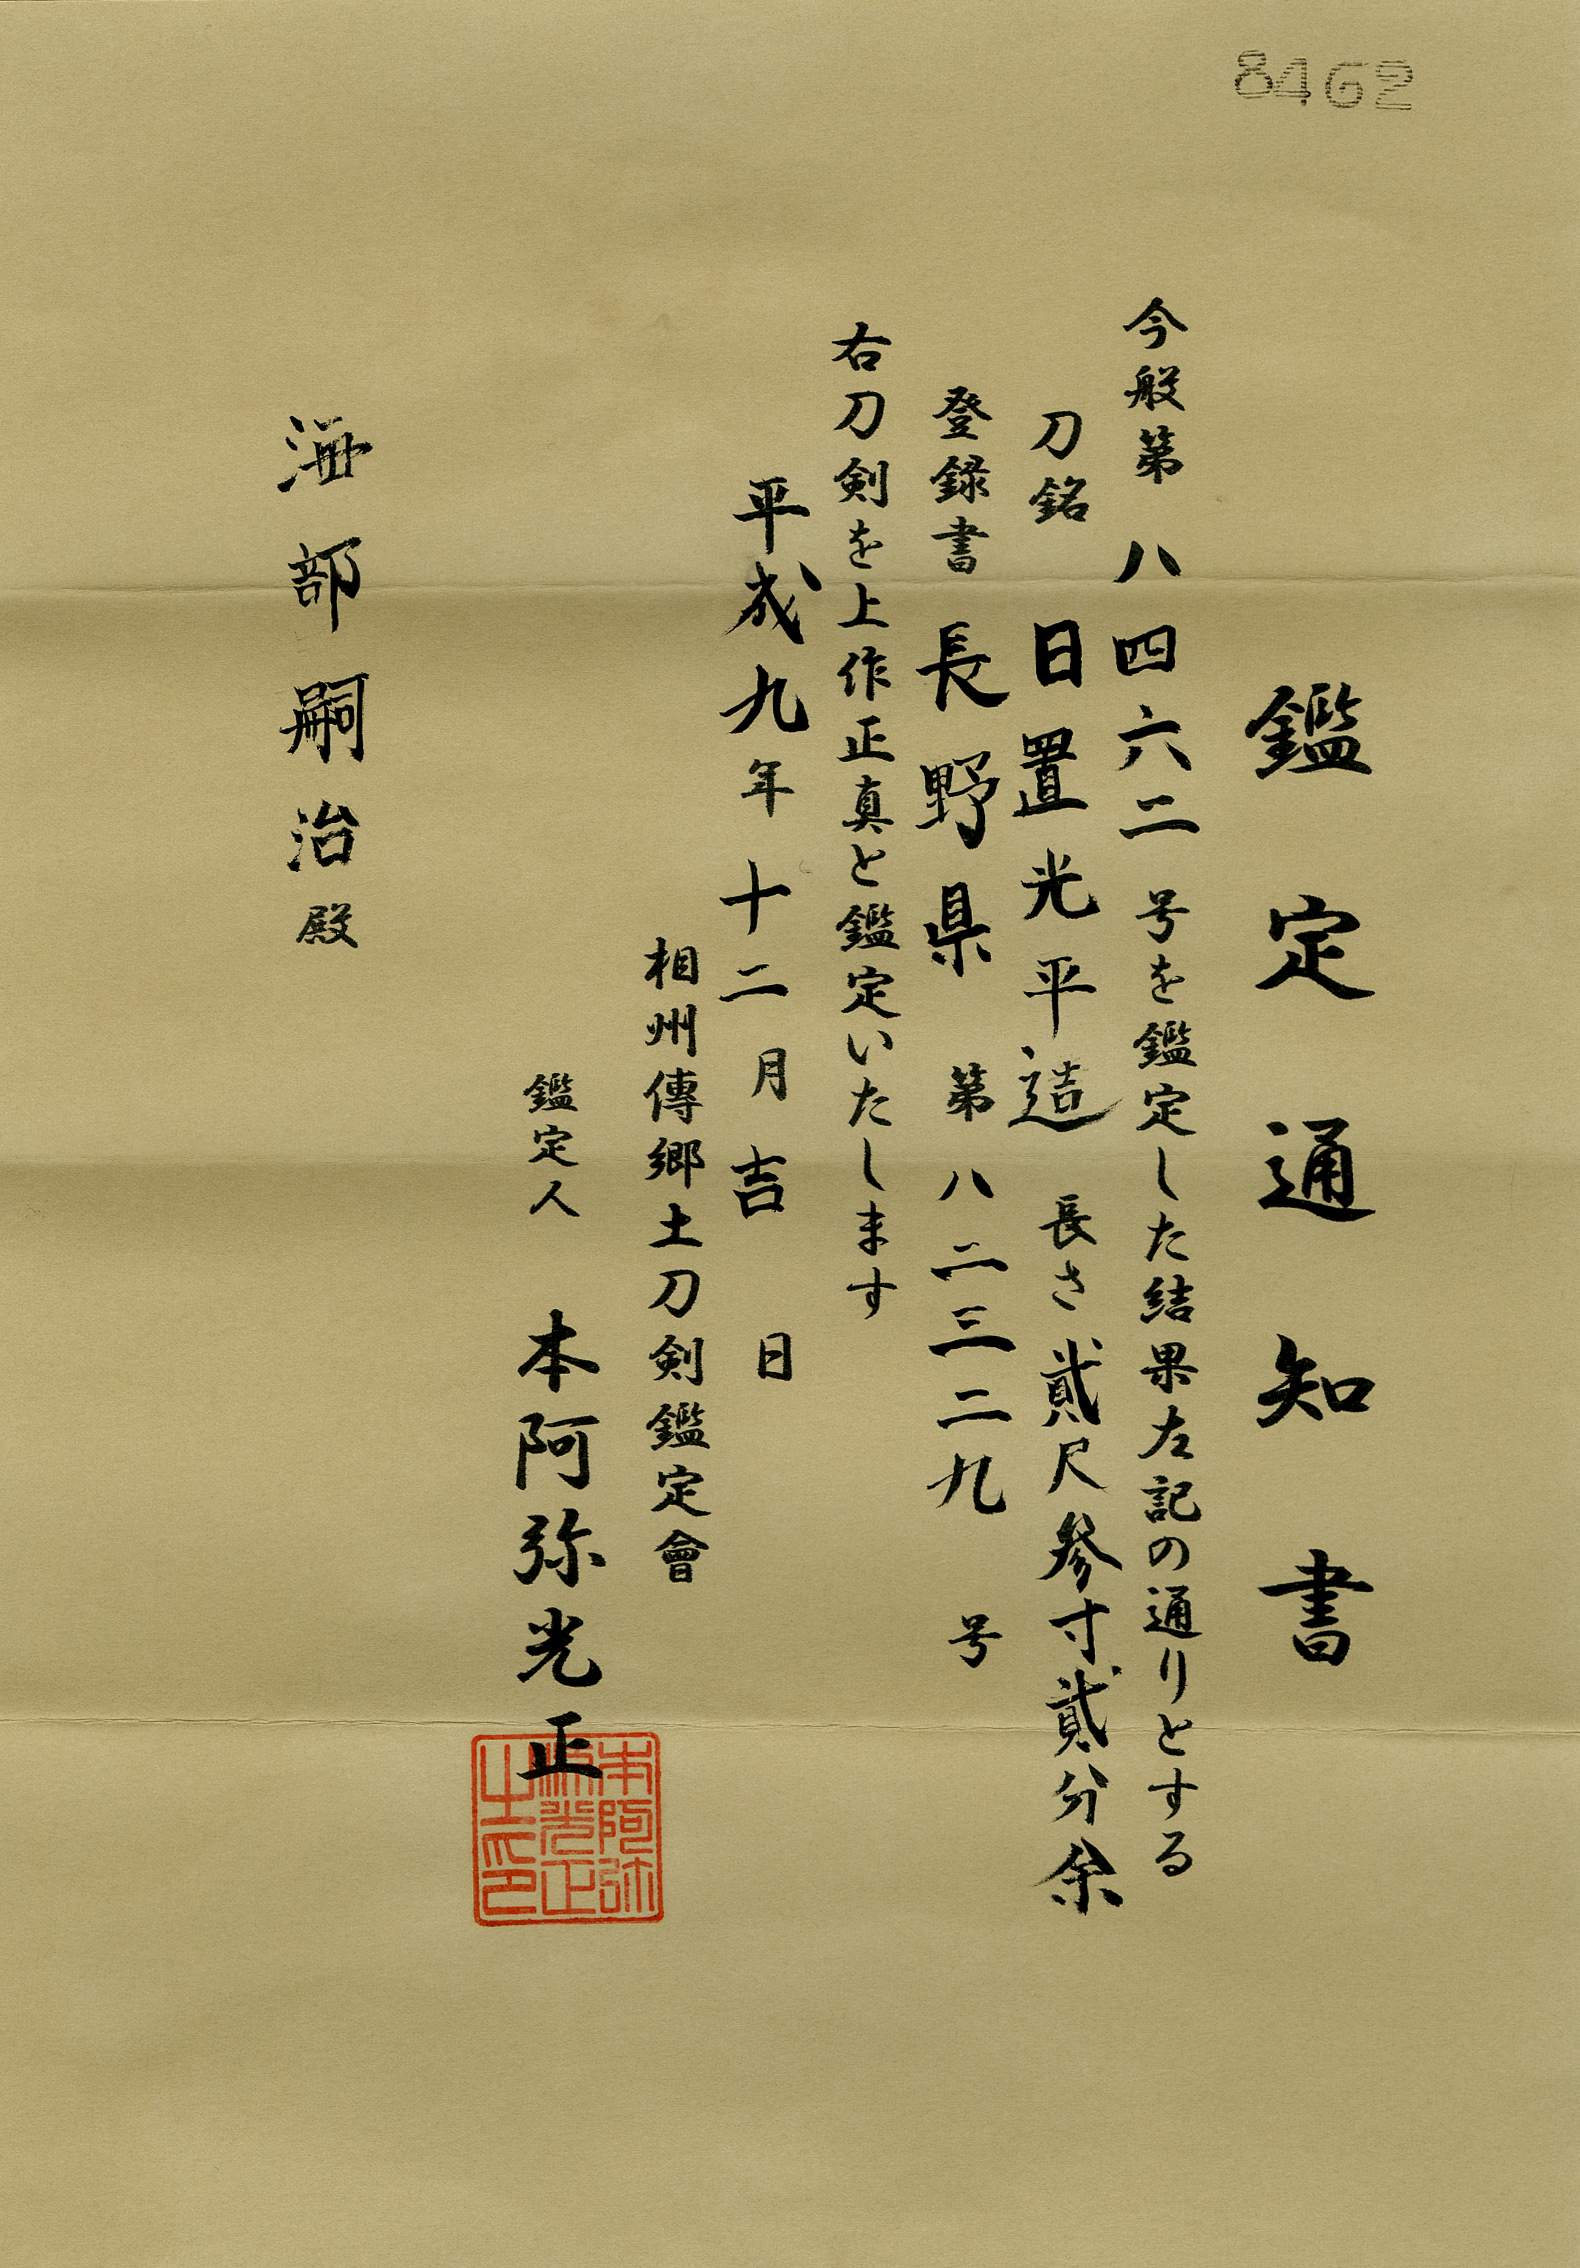 8462
鑑定通知書
今般第八四六二号を鑑定した結果左記の通りとする
刀銘 日置光平造 長さ貳尺参寸貳分余
登録書 長野県 第八二三二九号
右刀剣を上作正真と鑑定いたします
平成九年十二月吉日
相州傳郷土刀剣鑑定會
鑑定人 本阿弥光正
本阿弥
源光正
之印
海部嗣治殿